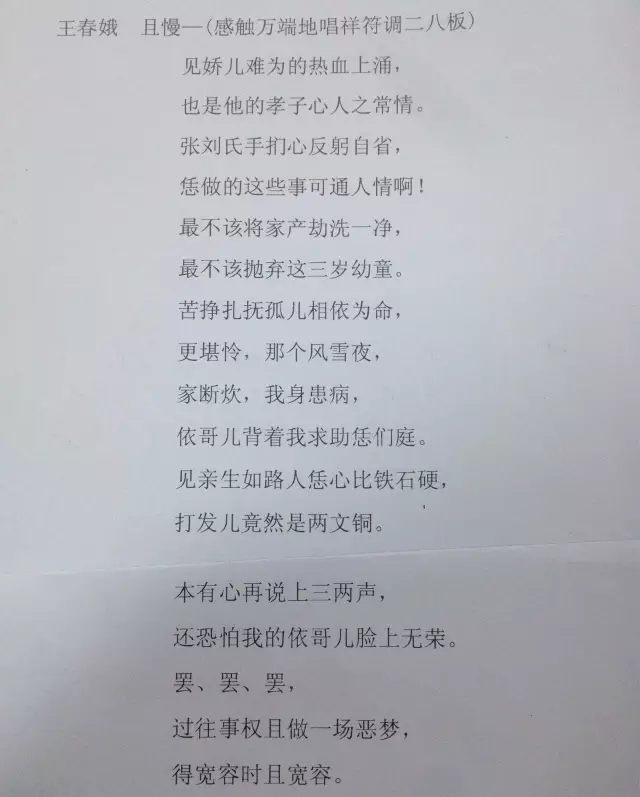 王春娥　且慢—(感触万端地唱祥符调二八板)
见娇儿难为的热血上涌，
也是他的孝子心人之常情。
张刘氏手扪心反躬自省，
恁做的这些事可通人情啊！
最不该将家产劫洗一净，
最不该抛弃这三岁幼童。
苦挣扎抚孤儿相依为命，
更堪怜，那个风雪夜，
家断炊，我身患病，
依哥儿背着我求助恁们庭。
见亲生如路人恁心比铁石硬，
打发儿竟然是两文铜。
本有心再说上三两声，
还恐怕我的依哥儿脸上无荣。
罢、罢、罢，
过往事权且做一场恶梦，
得宽容时且宽容。